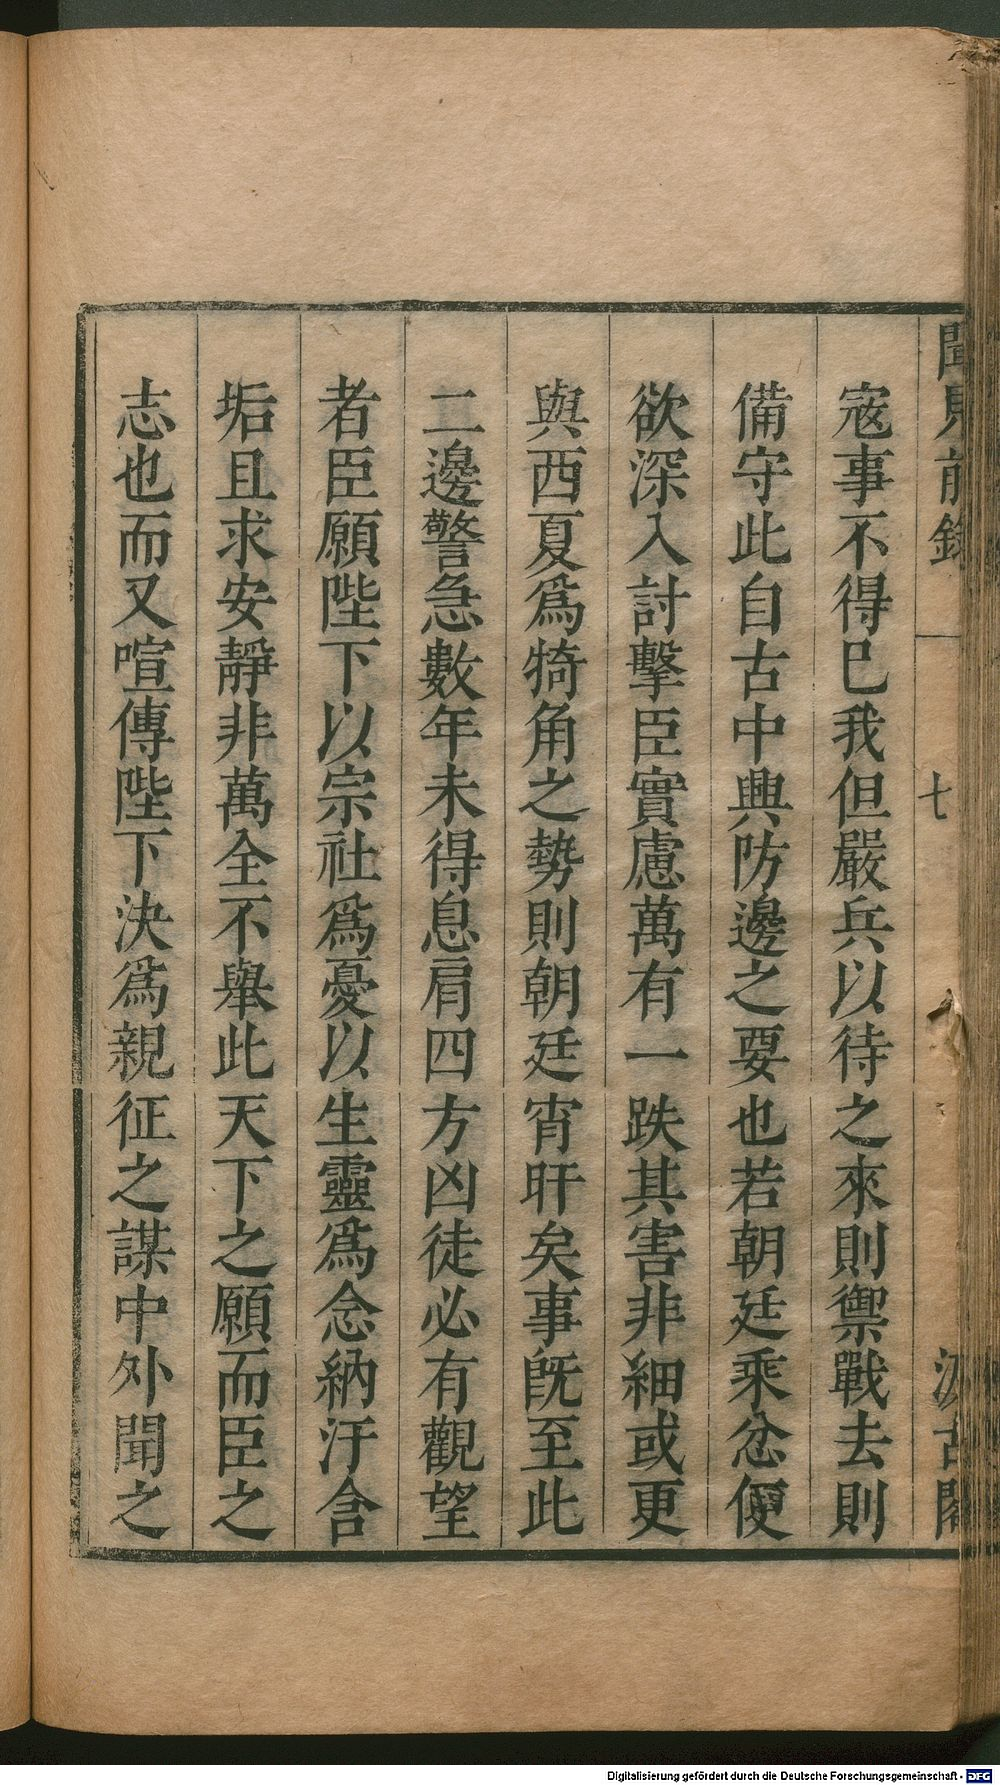 聞見前錄
七
汲古閣
寇事不得已我但嚴兵以待之來則禦戰去則
備守此自古中興防邊之要也若朝廷乘忿便
欲深入討擊臣實慮萬有一跌其害非細或更
與西夏爲犄角之勢則朝廷宵旰矣事旣至此
二邊警急數年未得息肩四方凶徒必有觀望
者臣願陛下以宗社爲憂以生靈爲念納汙含
垢且求安靜非萬全不舉此天下之願而臣之
志也而又喧傳陛下決爲親征之謀中外聞之
Digitalisierung gefördert durch die Deutsche Forschungsgemeinschaft - DFG